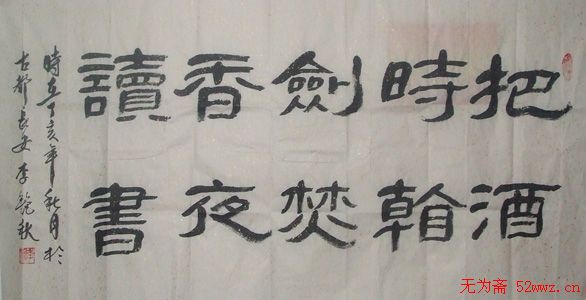 把酒
時看
劍焚
香夜
讀書
時在丁亥年秋月於
古都長安李秋
无为斋 52wwz.cn